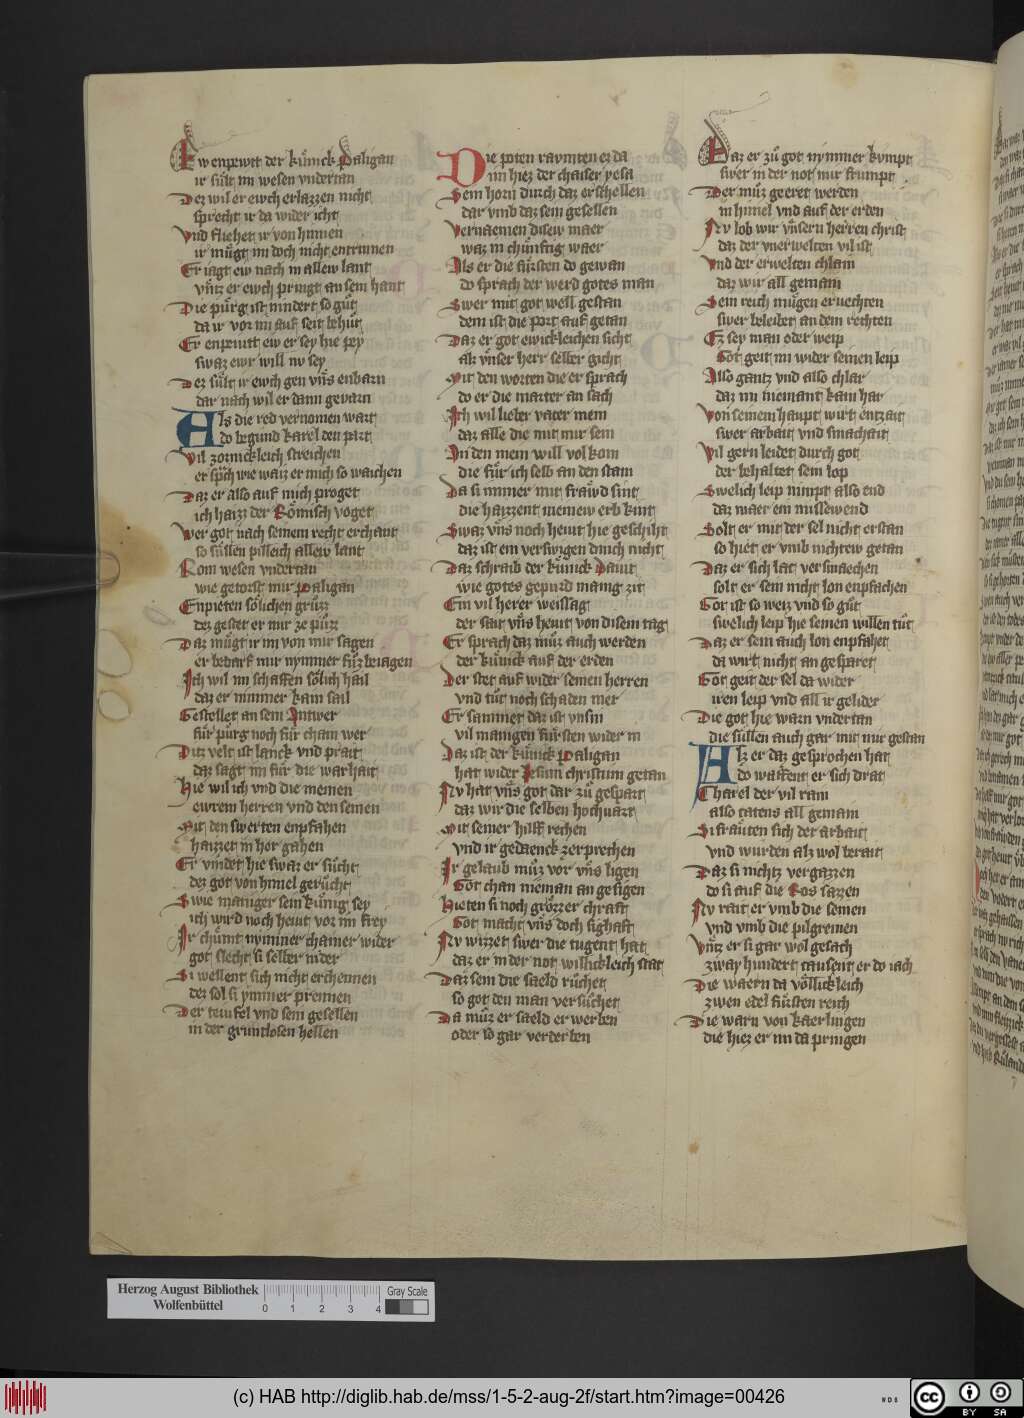 Ew enpewtt der kűnick Paligan
ir sült im wesen vndertan
Dez wil er ewch erlazzen nicht
sprecht ir da wider icht
Vnd fliehet ir von hinnen
ir műgt im doch nicht entrinnen
Er iagt ew nach in allew lant
vntz er ewch pringt an sein hant
Die pürg ist nindert so gůt
da ir vor im auf seit behůt
Er enpewtt ew er sey hie pey
swaz ewr will nv sey
Dez sült ir ewch gen vns enbarn
dar nach wil er dann gevarn
Als die red vernomen wart
do begund karel den part
Vil zornickleich streichen
er sprach wie waiz er mich so waichen
Daz er also auf mich proget
ich haizz der Rőmisch voget
Wer got nach seinem recht erchant
so süllen pilleich allew lant
Rom wesen vndertan
wie getorst mir Paligan
Enpieten sőlichen grůzz
dez gestet er mir ze půzz
Daz műgt ir im von mir sagen
er bedarf mir nymmer für beiagen
Ich wil im schaffen sőlich hail
daz er nimmer kain sail
Gestellet an sein Antwer
für pürg noch für chain wer
Ditz velt ist lanck vnd prait
daz sagt im für die warhait
Hie wil ich vnd die meinen
ewrem herren vnd den seinen
Mit den swerten enpfahen
haizzet in her gahen
Er vindet hie swaz er sůcht
dez got von himel gerůcht
Swie maniger sein künig sey
ich wird noch hewt vor im frey
Ir chümt nymmer chainer wider
got slecht si selber nider
Si wellent sich nicht erchennen
dez sol si ymmer prennen
Der tewfel vnd sein gesellen
in der gruntlosen hellen
Die poten ravmten ez da
nu hiez der chaiser yesa
Sein horn durch daz erschellen
dar vmb daz sein gesellen
Vernaemen disew maer
waz in chünftig waer
Als er die fürsten do gewan
do sprach der werd gotes man
Swer mit got well gestan
dem ist die port auf getan
Daz er got ewickleichen sicht
alz vnser herr selber gicht
Mit den worten die er sprach
do er die marter an sach
Ich wil lieber vater mein
daz alle die mit mir sein
In den mein will vol kom
die für ich selb an den stam
Da si immer mit fräwd sint
die haizzent meinew erb kint
Swaz vns noch hewt hie geschiht
daz ist ein verswigen dinch nicht
Daz schraib der künick Dauit
wie gotes gepurd manig zit
Ein vil herer weissag
der sait vns hewt von disem tag
Er sprach daz můz auch werden
der künick auf der erden
Der stet auf wider seinen herren
vnd tůt noch schaden mer
Er samnet daz ist vnsin
vil manigen fürsten wider in
Daz ist der künick Paligan
hat wider Jesum christum getan
Nv hat vns got dar zů gespart
daz wir die selben hochuart
Mit seiner hilff rechen
vnd ir gedaenck zerprechen
Ir gelaub můz vor vns ligen
Got chan nieman an gesigen
Hieten si noch grőzzer chraft
Got macht vns doch sighaft
Nv wizzet swer die tugent hat
daz er in der not willickleich stat
Daz sein die saeld růchet
so got den man versůchet
Da můz er saeld erwerben
oder so gar verderben
Daz er zů got nymmer kvmpt
swer in der not nur frumpt
Der můz geeret werden
in himel vnd auf der erden
Nv lob wir vnsern herren christ
daz der vnerwelten vil ist
Vnd der erwelten chlain
daz wir all gemain
Sein reich mügen ervechten
swer beleibet an dem rechten
Ez sey man oder weip
Got geit im wider seinen leip
Also gantz vnd also chlar
daz im niemant kain har
Von seinem haupt wirt entzait
swer arbait vnd smachait
Vil gern leidet durch got
der behaltet sein lop
Swelich leip nimpt also end
daz waer ein missewend
Solt er mit der sel nicht erstan
so hiet er vmb nichtew getan
Daz er sich lat versmaechen
solt er sein nicht lon enpfachen
Got ist so weiz vnd so gůt
swelich leip hie seinen willen tůt
Daz er sein auch lon enpfahet
da wirt nicht an gesparet
Got geit der sel da wider
iren leip vnd all ir gelider
Die got hie warn vndertan
die süllen auch gar mit mir gestan
Alz er daz gesprochen hat
do waffent er sich drat
Charel der vil rain
also tatens all gemain
Si fräuten sich der arbait
vnd wurden alz wol berait
Daz si nichtz vergazzen
do si auf die Ros sazzen
Nv rait er vmb die seinen
vnd vmb die pilgreinen
Vntz er si gar wol gesach
zway hundert tausent er do iach
Die waern da vőllickleich
zwen edel fürsten reich
Die warn von kaerlingen
die hiez er im da pringen
Herzog August Bibliothek
Wolfenbüttel
0 1 2 3 4
Gray Scale
(c) HAB http://diglib.hab.de/mss/1-5-2-aug-2f/start.htm?image=00426
cc BY SA